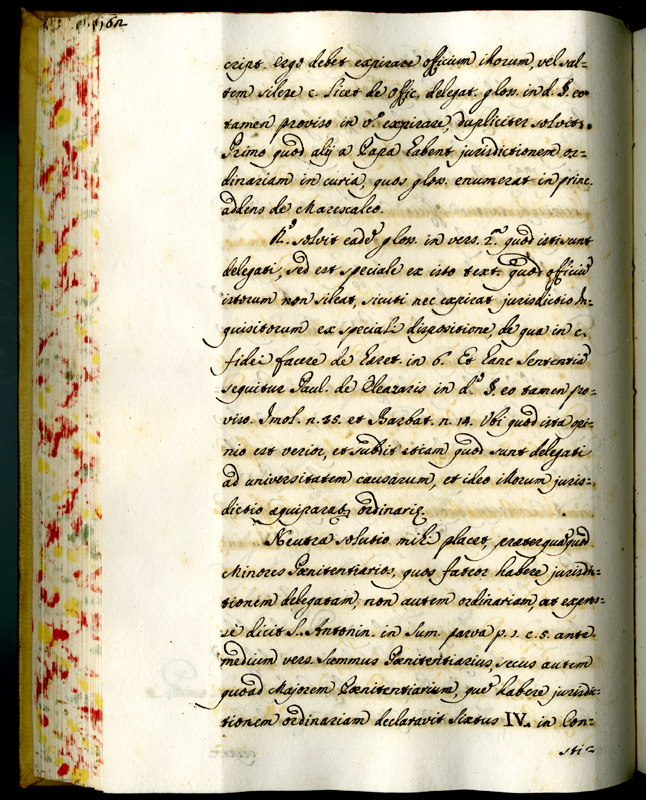 162
cript. ergo debet expirare officium illorum, vel sal-
tem silere c. licet de offic. delegat. glos. in d. §. eo
tamen proviso in v.º expirare, dupliciter solvit.
Primo quod alij a Papa habent jurisdictionem or-
dinariam in curia, quos glos. enumerat in princ.
addens de Marescalco.
2.º solvit eadē glos. in vers. 2.º quod isti sunt
delegati, sed est speciale ex isto text. quod officiū
istorum non sileat, sicuti nec expirat jurisdictio In-
quisitorum ex speciali dispositione, de qua in c.
fidei facere de haret. in 6. Et hanc sententiā
sequitur Paul. de Eleazaris in d.º §. eo tamen pro-
viso. Imol. n. 35. et Barbat. n. 14. Ubi quod ista opi-
nio est verior, et subdit etiam quod sunt delegati
ad universitatem causarum, et ideo illorum juris-
dictio æquiparat ordinariæ.
Neutra solutio mihi placet, præterquā quod
Minores Pœnitentiarios, quos fateor habere jurisdic-
tionem delegatam, non autem ordinariam, ut expres-
se dicit S. Antonin. in Sum. parva p. 1. c. 5. ante
medium vers. summus Pœnitentiarius, secus autem
quoad Majorem Pœnitentiarium, quē habere jurisdic-
tionem ordinariam declaravit Sixtus IV. in Con-
sti-